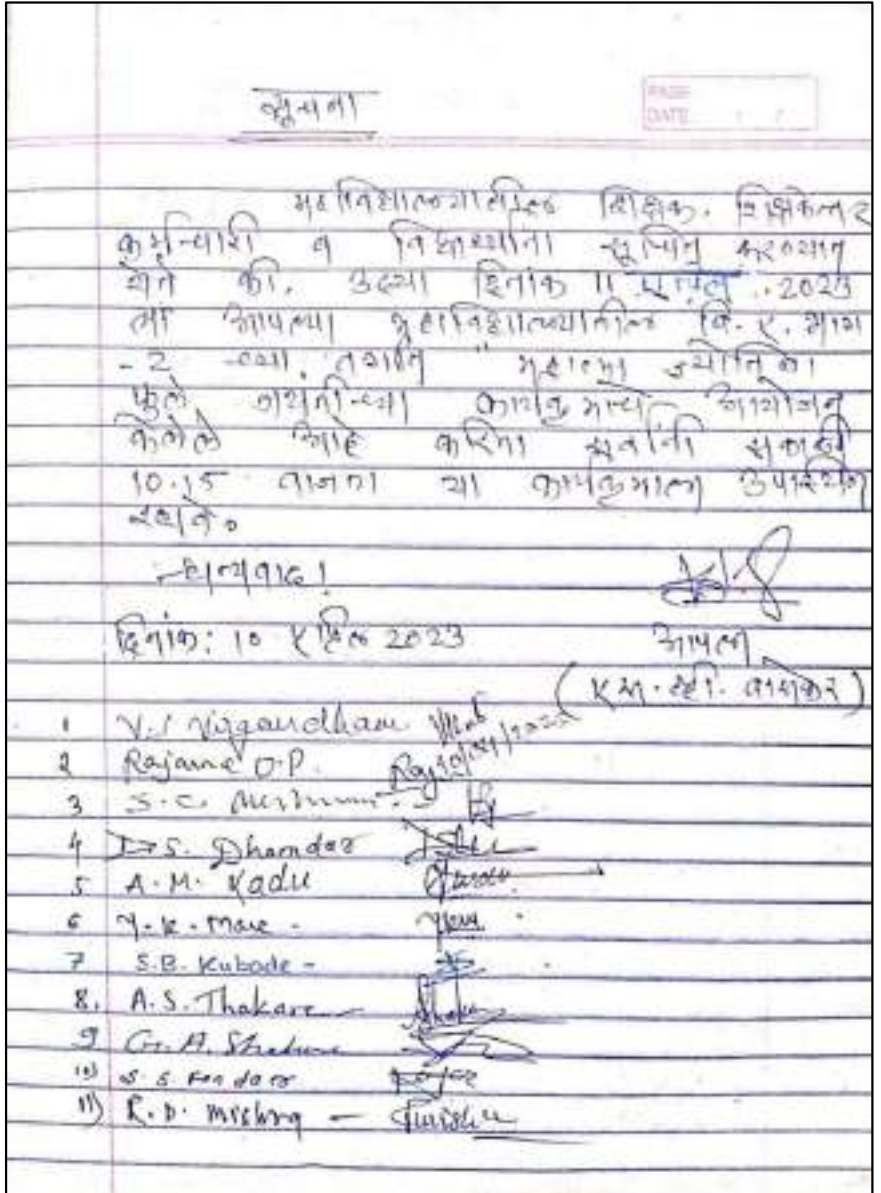 सूचना
PAGE
DATE / /
महाविद्यालयातील शिक्षक, शिक्षकेत्तर
कर्मचारी व विद्यार्थ्यांना सूचित करण्यात
येते की, उद्या दिनांक 11 एप्रिल 2023
ला आपल्या महाविद्यालयातील बि. ए. भाग
- 2 च्या तर्फे " महात्मा ज्योतिबा
फुले जयंतीच्या कार्यक्रमाचे आयोजन
केलेले आहे करिता सर्वांनी सकाळी
10.15 वाजता या कार्यक्रमाला उपस्थित
रहावे.
धन्यवाद !
दिनांक: 10 एप्रिल 2023 आपला
(एम. व्ही. )
1 V.J
2 Rajane O.P. 10/04/2023
3 S.C.
4 D.S. Dhamdar
5 A.M. Kadu
6 Y.K. More -
7 S.B. Kubade -
8. A.S. Thakare
9 G.A.
10) S.S.
11) R.D. Mishra -